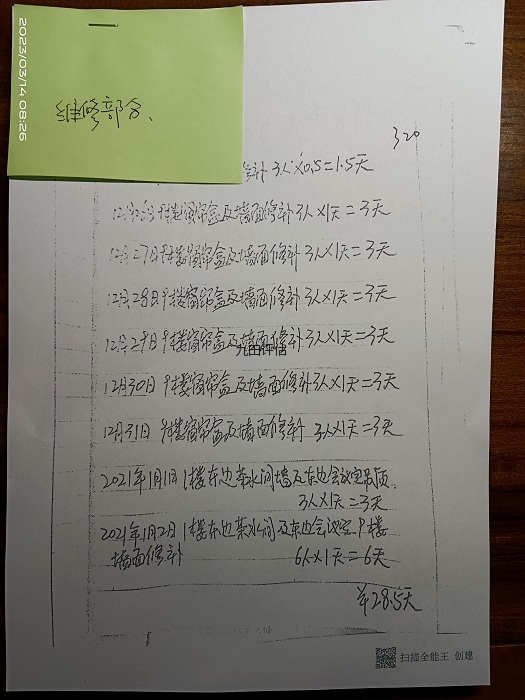 2023/03/14 08:26
维修部分、
320
修补 3人×0.5=1.5天
12月26日9楼窗帘盒及墙面修补3人×1天=3天
12月27日9楼窗帘盒及墙面修补3人×1天=3天
12月28日9楼窗帘盒及墙面修补3人×1天=3天
12月29日9楼窗帘盒及墙面修补3人×1天=3天
12月30日9楼窗帘盒及墙面修补3人×1天=3天
12月31日9楼窗帘盒及墙面修补 3人×1天=3天
2021年1月1日1楼东边茶水间墙及东边会议室吊顶
3人×1天=3天
2021年1月2日1楼东边茶水间及东边会议室、9楼
墙面修补 6人×1天=6天
28.5天
扫描全能王 创建